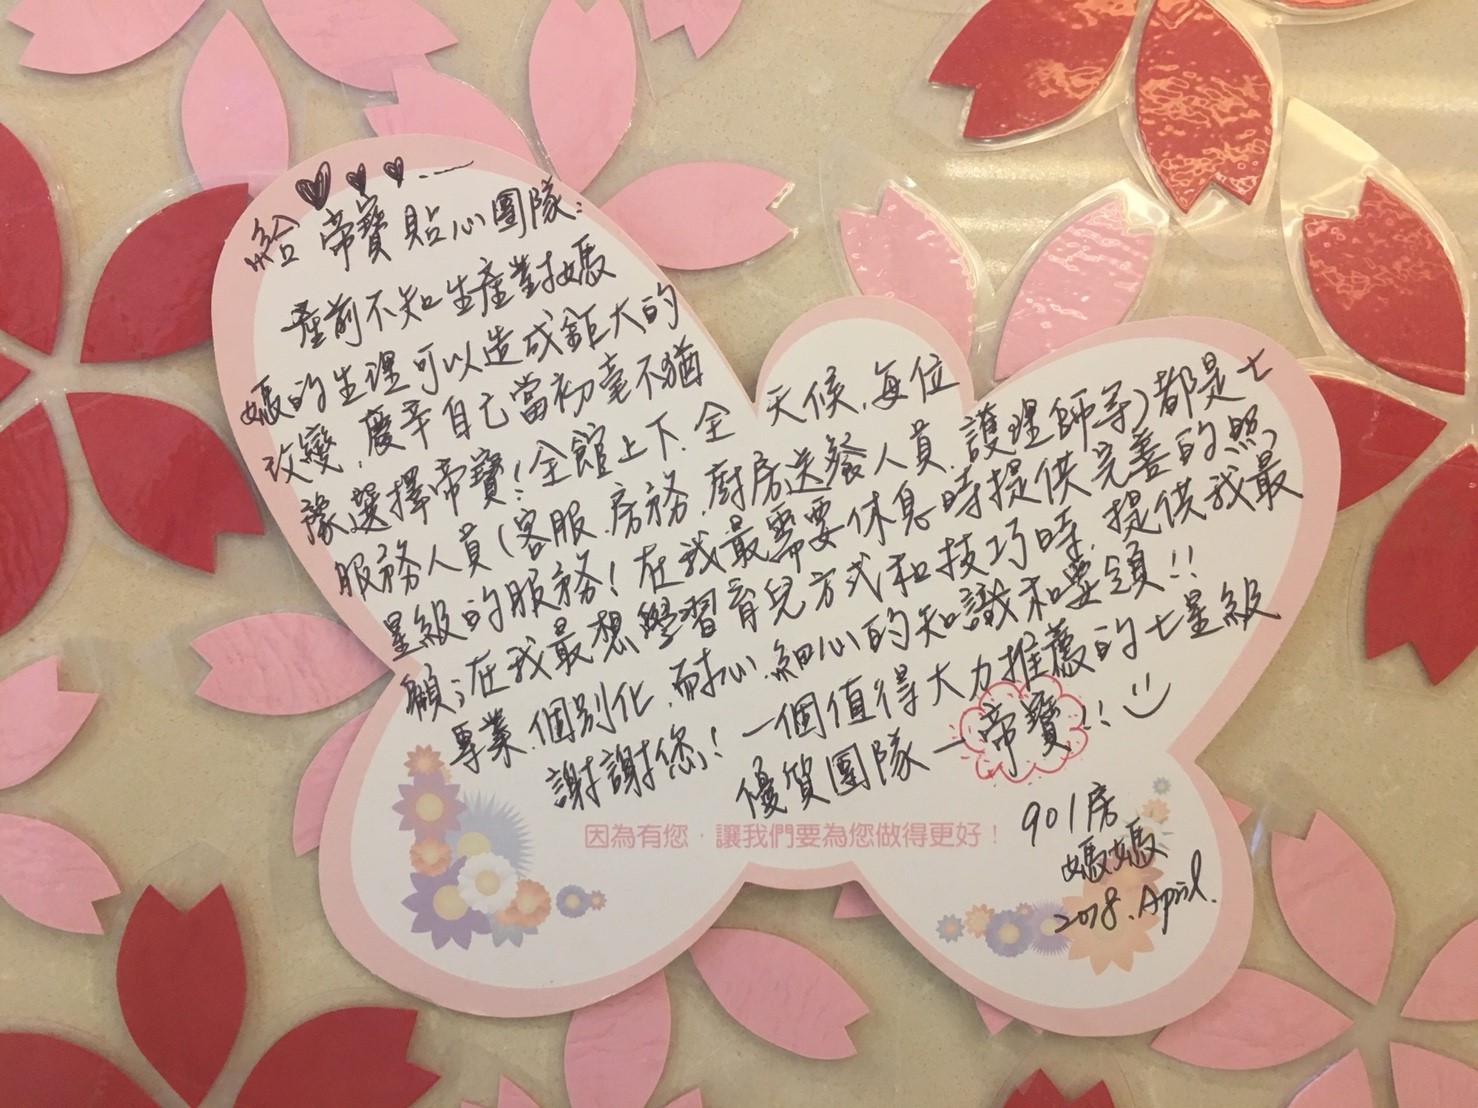 給 帝寶 貼心團隊：
產前不知生產對媽
媽的生理可以造成鉅大的
改變、慶幸自己當初毫不猶
豫選擇帝寶！全館上下、全 天候、每位
服務人員（客服、房務、廚房送餐人員、護理師等）都是七
星級的服務！在我最需要休息時提供完善的照
顧；在我最想學習育兒方式和技巧時，提供我最
專業、個別化、耐心、細心的知識和要領！！
謝謝您！一個值得大力推薦的七星級
優質團隊—帝寶！！
因為有您，讓我們要為您做得更好！
901房
媽媽
2018. April.